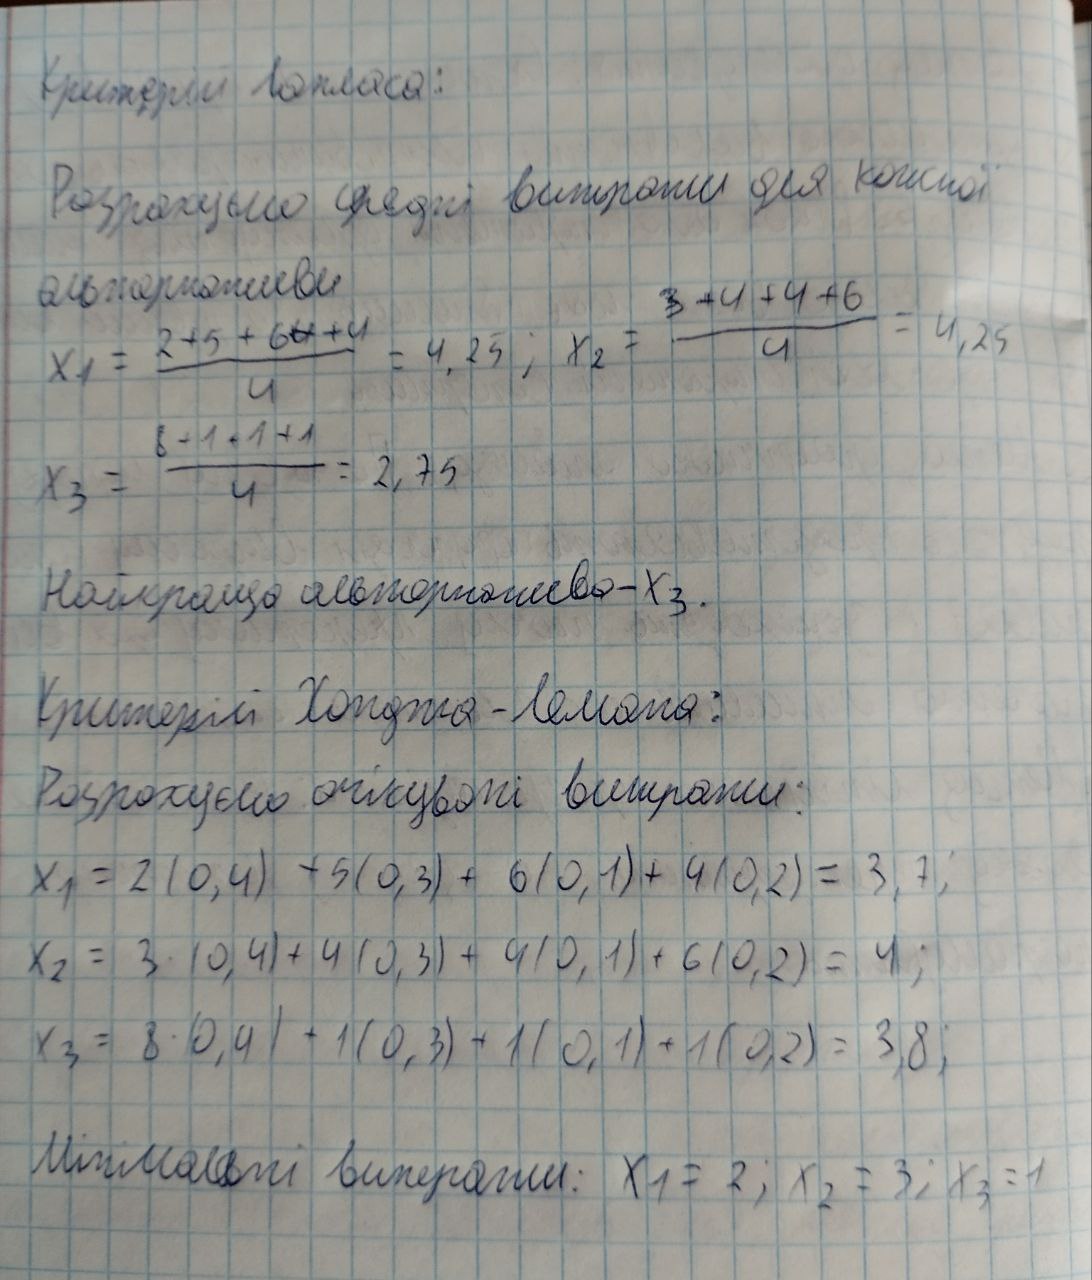 Критерій Лапласа:
Розрахуємо средні витрати для кожної
альтернативи
x1 = (2+5+6+4)/4 = 4,25; x2 = (3+4+4+6)/4 = 4,25
x3 = (8+1+1+1)/4 = 2,75
Найкраща альтернатива - x3.
Критерій Ходжа - Лемана:
Розрахуємо очікувані витрати:
x1 = 2(0,4) + 5(0,3) + 6(0,1) + 4(0,2) = 3,7;
x2 = 3·(0,4) + 4(0,3) + 4(0,1) + 6(0,2) = 4;
x3 = 8·(0,4) + 1(0,3) + 1(0,1) + 1(0,2) = 3,8;
Мінімальні витрати: x1 = 2; x2 = 3; x3 = 1